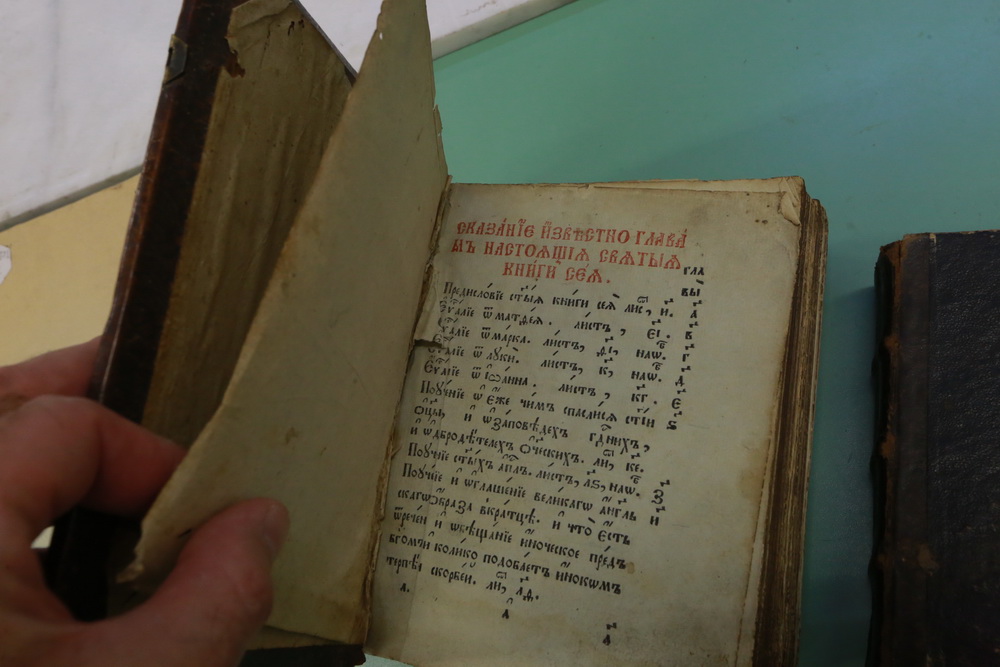 сказа́нїе и҆звѣ́стно глава́
мъ настоѧ́щїѧ свѧты́ѧ
кни́ги сеѧ̀.
гла
вы̀
Предисло́вїе ст҃ы́ѧ кни́ги сеѧ̀ лис, и҃. а҃
Є҆ѵ҃лїе ѿ матѳе́ѧ. ли́стъ, є҃і. в҃
Є҆ѵ҃лїе ѿ ма́рка. ли́стъ, наѡ҆. г҃
Є҆ѵ҃лїе ѿ лꙋкѝ. ли́стъ, к҃, наѡ҆. д҃
Є҆ѵ҃лїе ѿ і҆ѡа́нна. ли́стъ, к҃г. є҃
Поꙋче́нїе ѡ҆ є҆́же чи́мъ спасли́сѧ ст҃і́и ѕ҃
ѻ҆цы̀, и҆ ѡ҆ за́повѣдехъ гдⷭ҇нихъ,
и҆ ѡ҆ добродѣ́телехъ ѻ҆те́ческихъ. ли, к҃е.
Поꙋче́нїе ст҃ы́хъ а҆пⷭ҇лъ. ли́стъ, л҃ѕ, наѡ҆.
Поꙋче́нїе и҆ ѡ҆глаше́нїе вели́кагѡ а҆́нгль и
скагѡ ѻ҆́браза вкра́тцѣ. и҆ что̀ є҆́сть
ѿрече́н и҆ ѡ҆бѣща́нїе и҆́ноческое пре́дъ
бг҃омъ и҆ коли́ко подоба́етъ и҆́нокѡмъ
терпѣ́ти скорбе́й. ли,
а҃.